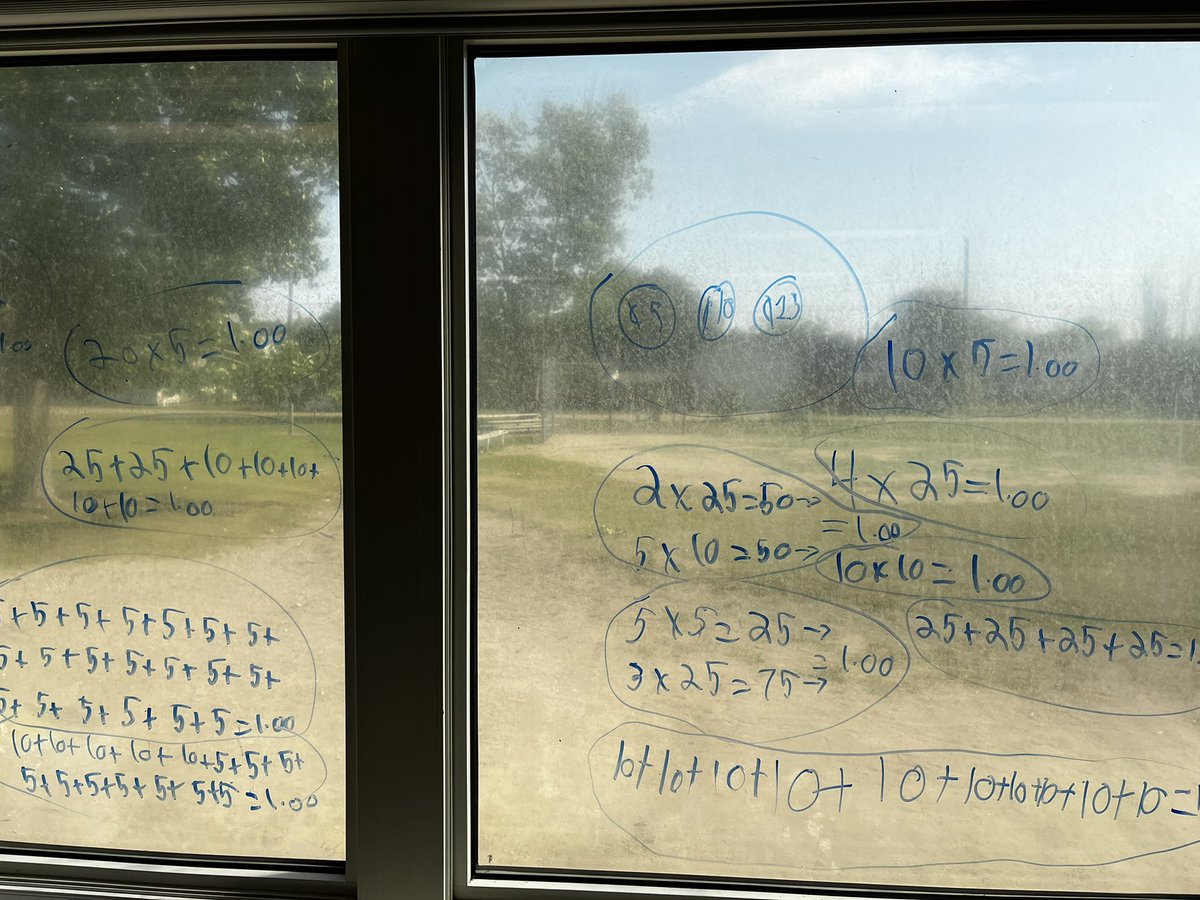 1.00
20 x 5 = 1.00
25+25+10+10+10+
10+10=1.00
5+5+5+5+5+5+5+
5+5+5+5+5+5+5+
5+5+5+5+5+5=1.00
10+10+10+10+10+5+5+5+
5+5+5+5+5+5+5=1.00
10 x 5=1.00
2 x 25=50→
=1.00
5 x 10=50→
4 x 25=1.00
10x10=1.00
5 x 5=25→
=1.00
3 x 25=75→
25+25+25+25=1.
10+10+10+10+10+10+10+10+10+10=1